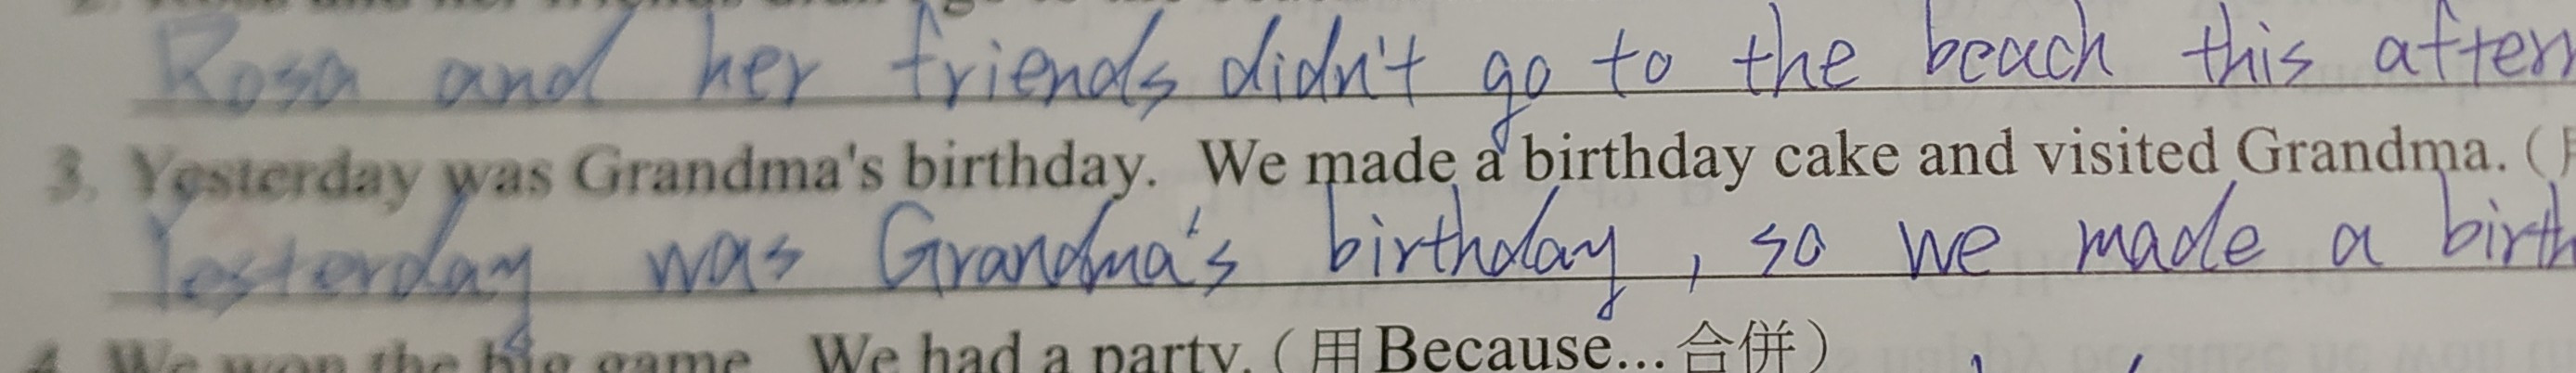 Rosa and her friends didn't go to the beach this
3. Yesterday was Grandma's birthday. We made a birthday cake and visited Grandma. (
Yesterday was Grandma's birthday, so we made a birth
4. We won the big game. We had a party. (用 Because... 合併)